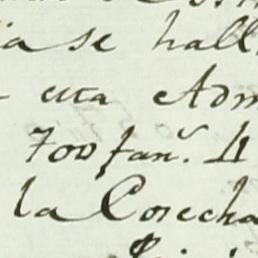 ia se hall
esta Adm
700 fan.s 11
la Cosecha